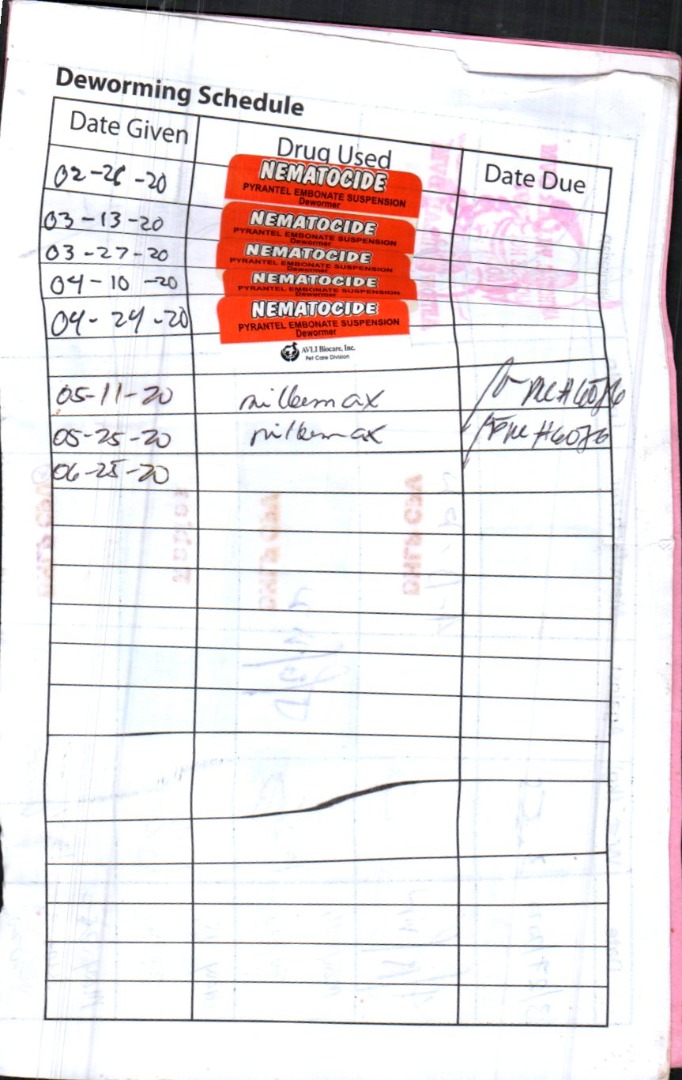 Deworming Schedule
Date Given Drug Used Date Due
NEMATOCIDE
PYRANTEL EMBONATE SUSPENSION
Dewormer
03-13-20 NEMATOCIDE
PYRANTEL EMBONATE SUSPENSION
Dewormer
03-27-20 NEMATOCIDE
PYRANTEL EMBONATE SUSPENSION
Dewormer
04-10-20 NEMATOCIDE
PYRANTEL EMBONATE SUSPENSION
Dewormer
04-24-20 NEMATOCIDE
PYRANTEL EMBONATE SUSPENSION
Dewormer
AVLI Biocare, Inc.
Pet Care Division
05-11-20 milbemax
05-25-20 milbemax
06-25-20